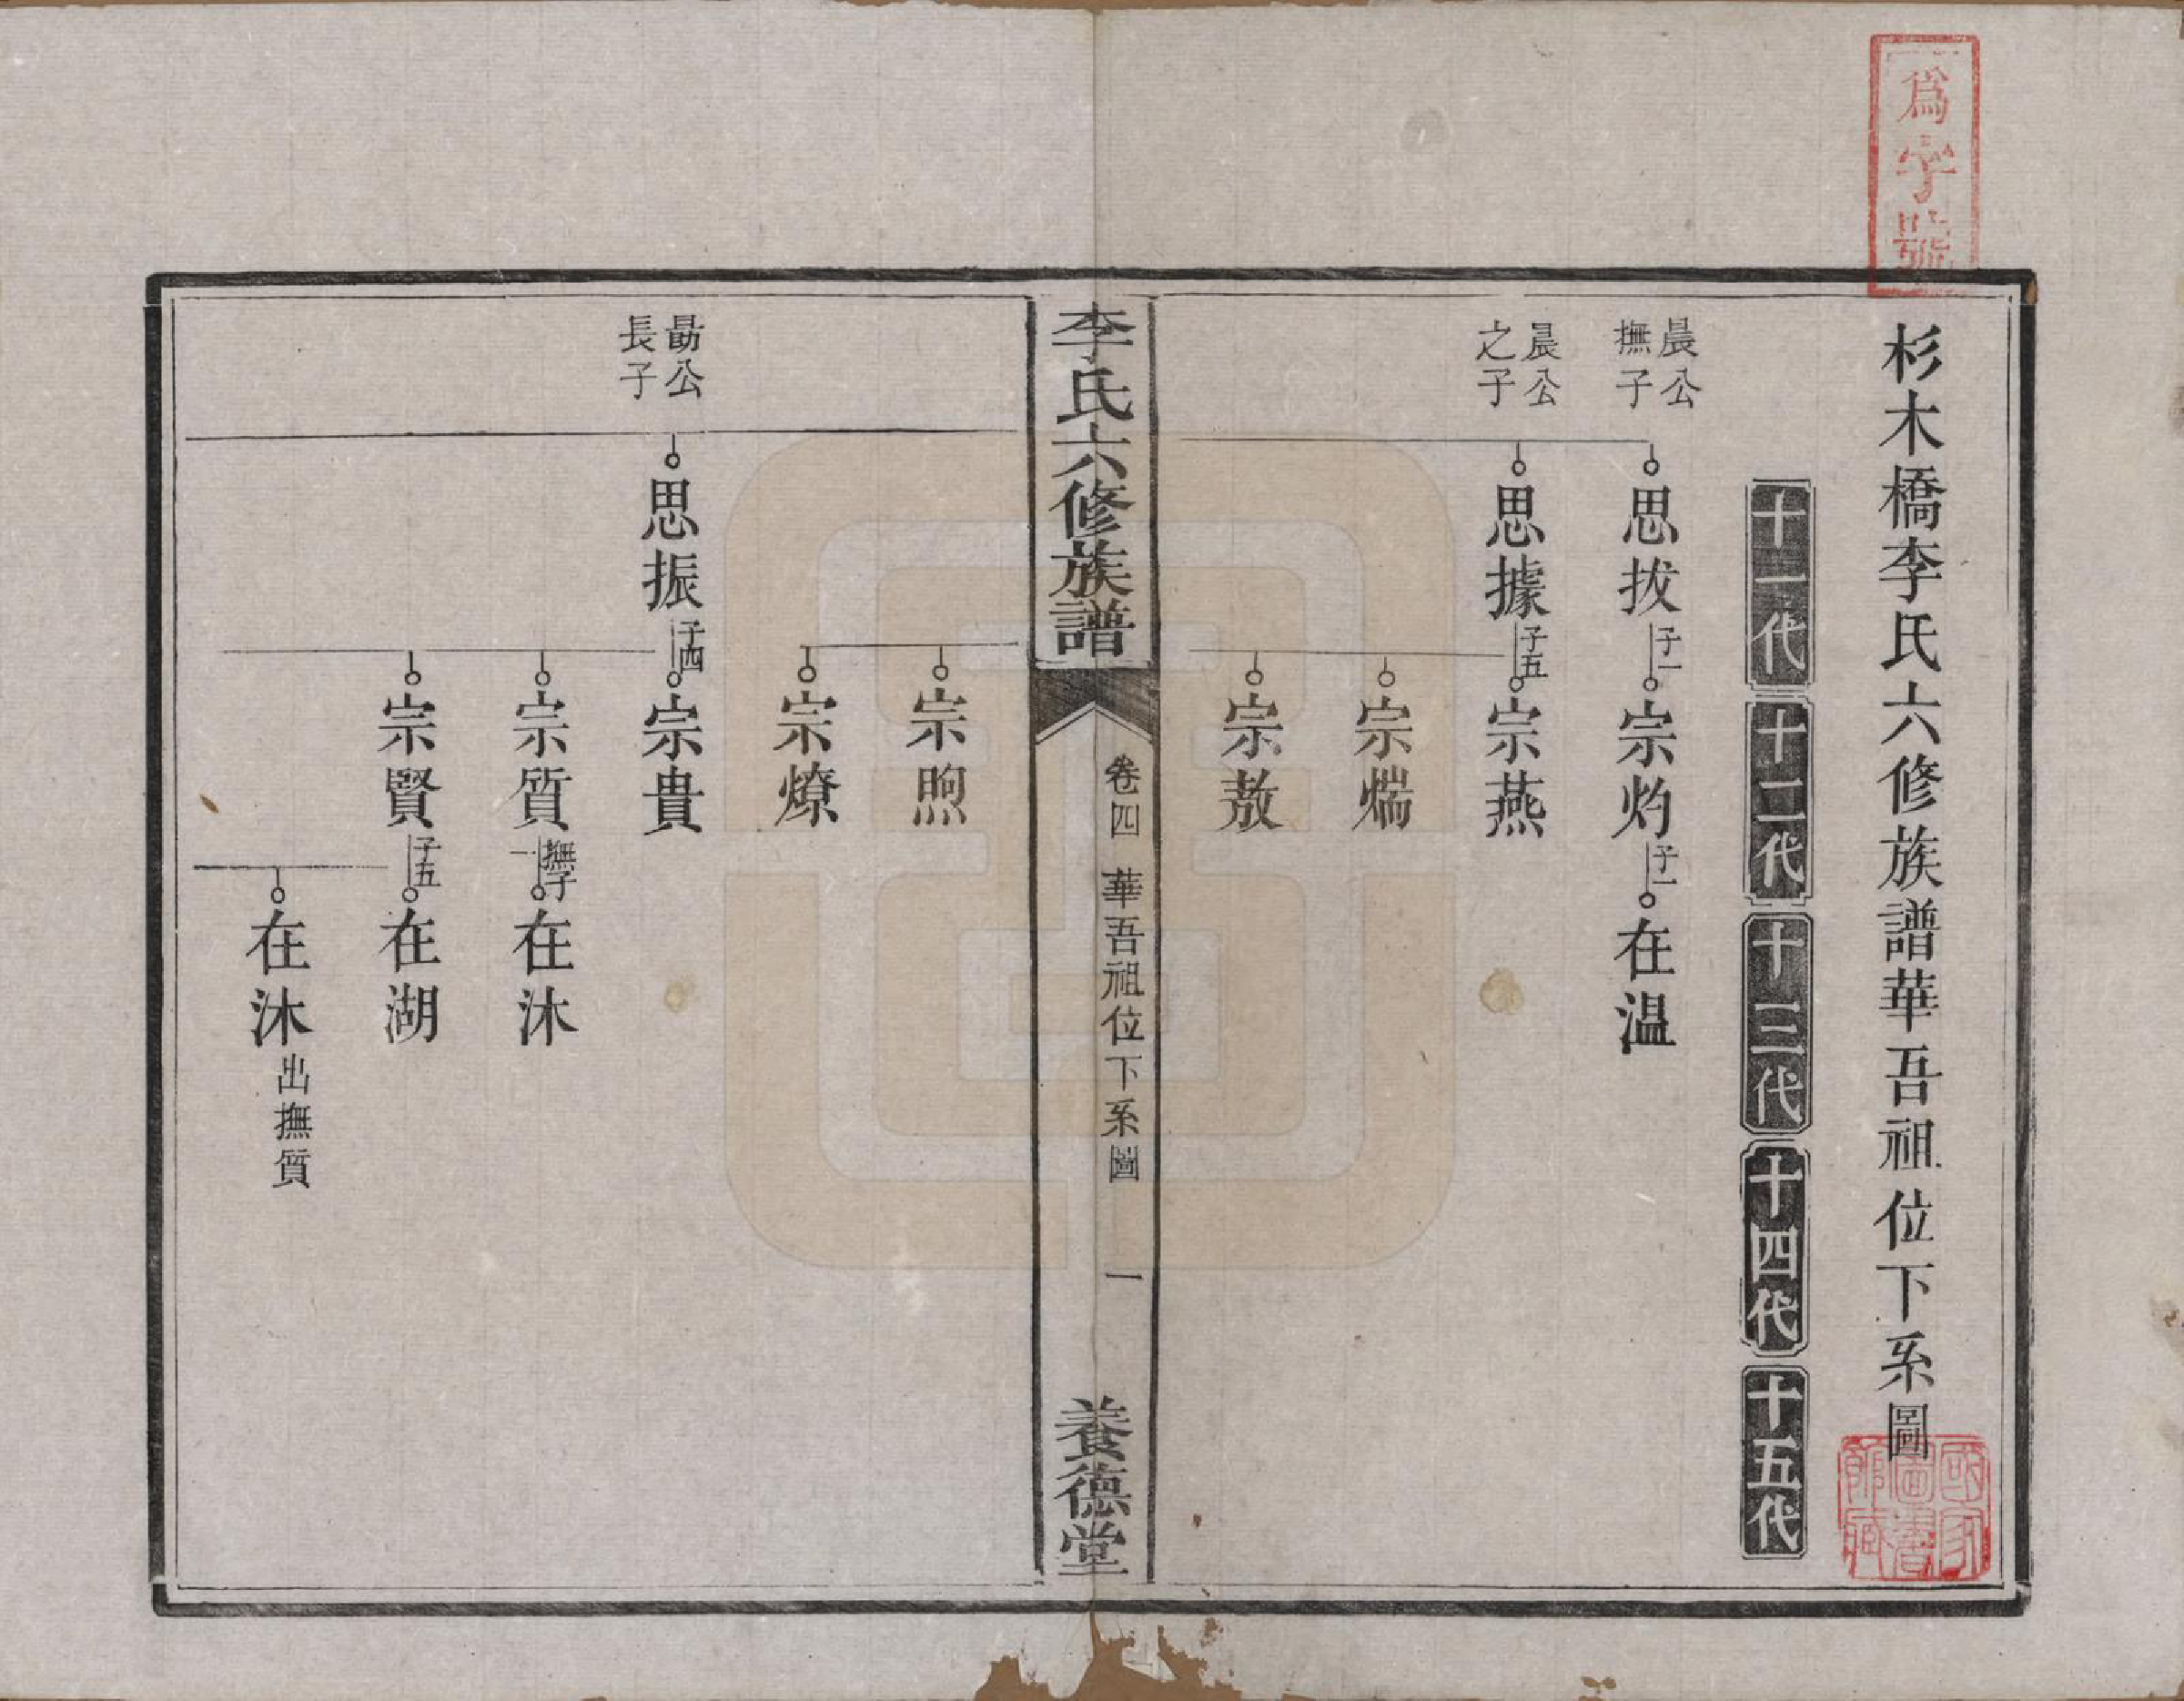 爲字號
杉木橋李氏六修族譜華吾祖位下系圖
國家圖書館藏
十一代 十二代 十三代 十四代 十五代
晨公撫子
思拔 子一 宗灼 子一 在溫
晨公之子
思據 子五 宗燕
宗煓
宗敖
李氏六修族譜 卷四 華吾祖位下系圖 一 養德堂
宗煦
宗燎
勗公長子
思振 子四 宗貴
宗質 撫子一 在沐
宗賢 子五 在湖
在沐 出撫質